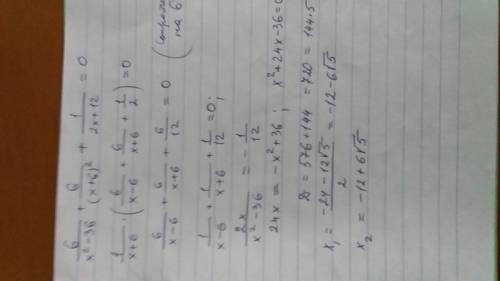 6/(x²-36) + 6/(x+6)² + 1/(2x+12) = 0
1/(x+6) · (6/(x-6) + 6/(x+6) + 1/2) = 0
6/(x-6) + 6/(x+6) + 6/12 = 0 (сократ на 6
1/(x-6) + 1/(x+6) + 1/12 = 0;
2x/(x²-36) = -1/12
24x = -x²+36 ; x²+24x-36=0
D = 576+144 = 720 = 144·5
x₁ = (-24-12√5)/2 = -12-6√5
x₂ = -12+6√5